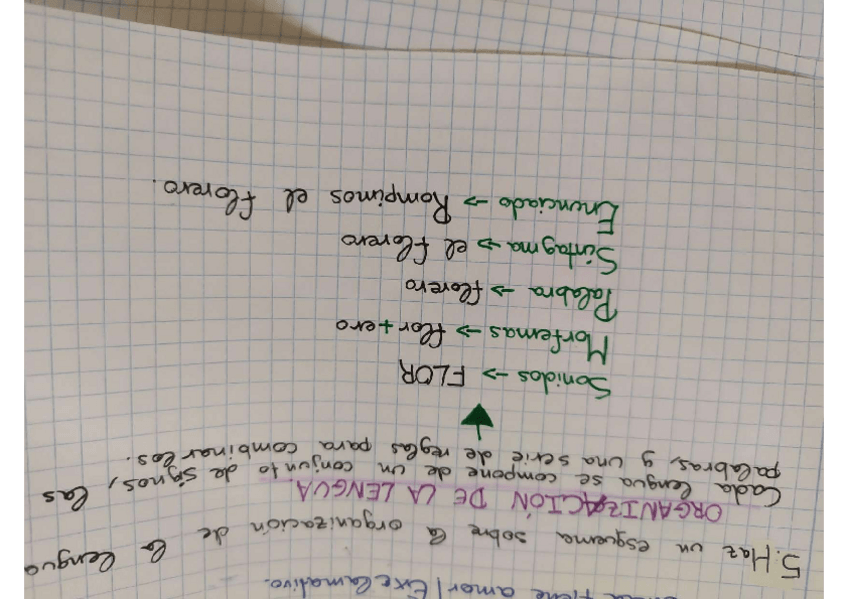 tiene amor/Exclamativo.
5. Haz un esquema sobre la organización de la lengua
ORGANIZACIÓN DE LA LENGUA.
Cada lengua se compone de un conjunto de signos, las
palabras, y una serie de reglas para combinarlos.
Sonidos → FLOR
Morfemas → flor+ero
Palabra → florero
Sintagma → el florero
Enunciado → Rompimos el florero.